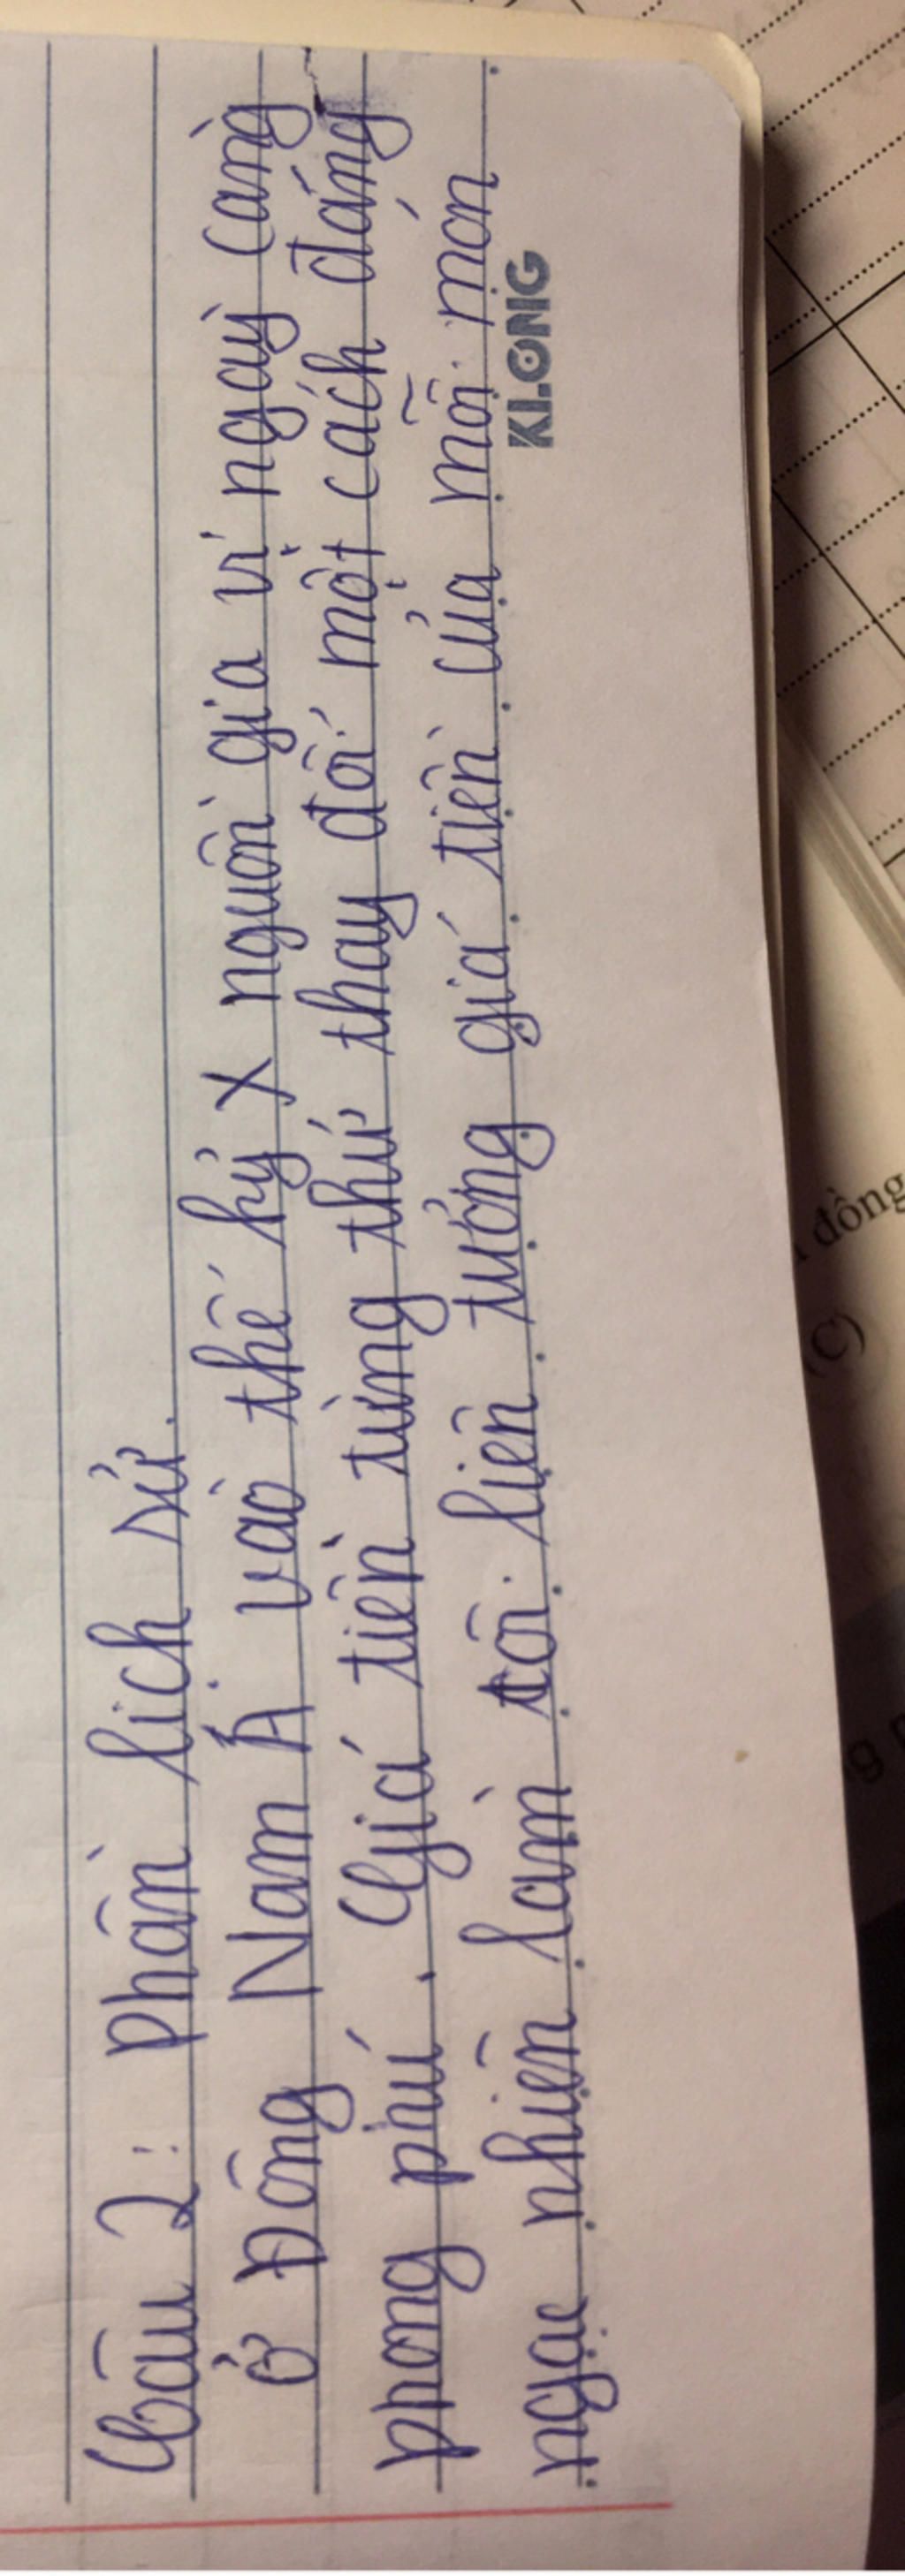 Câu 2: Phần lịch sử.
Ở Đông Nam Á vào thế kỷ X nguồn gia vị ngày càng
phong phú. Giá tiền từng thứ thay đổi một cách đáng
ngạc nhiên làm tôi liên tưởng giá tiền của mỗi món
KLONG
đồng
(C)